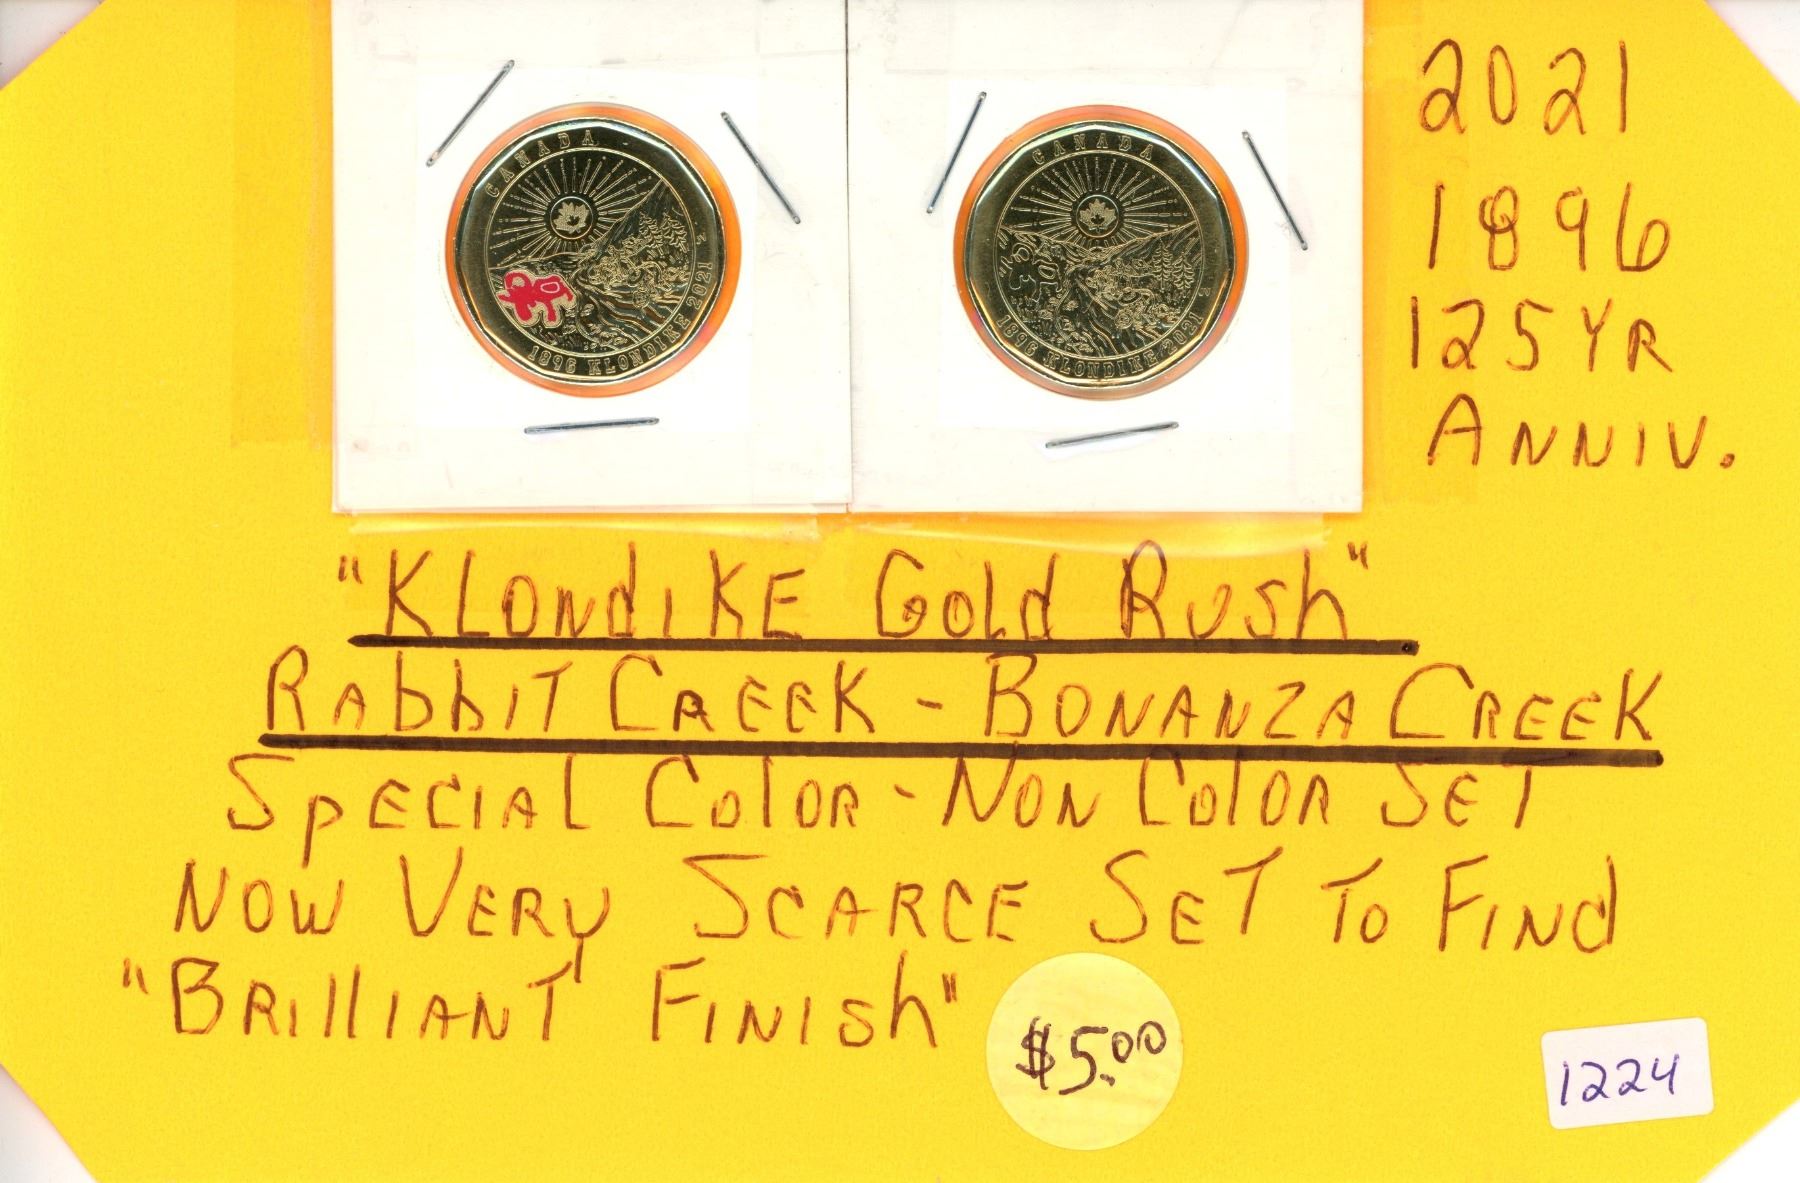 CANADA
1896 KLONDIKE 2021
CANADA
1896 KLONDIKE 2021
2021
1896
125 YR
ANNIV.
"KLONDIKE GOLD RUSH"
RABBIT CREEK - BONANZA CREEK
SPECIAL COLOR - NON COLOR SET
NOW VERY SCARCE SET TO FIND
"BRILLIANT FINISH"
$5.00
1224